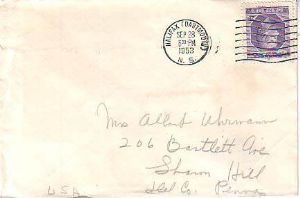 HALIFAX DARTMOUTH
SEP 28
PM
1953
N. S.
Mrs Albert Uhrmann
206 Bartlett Ave
Sharon Hill
Del Co. Penna
USA